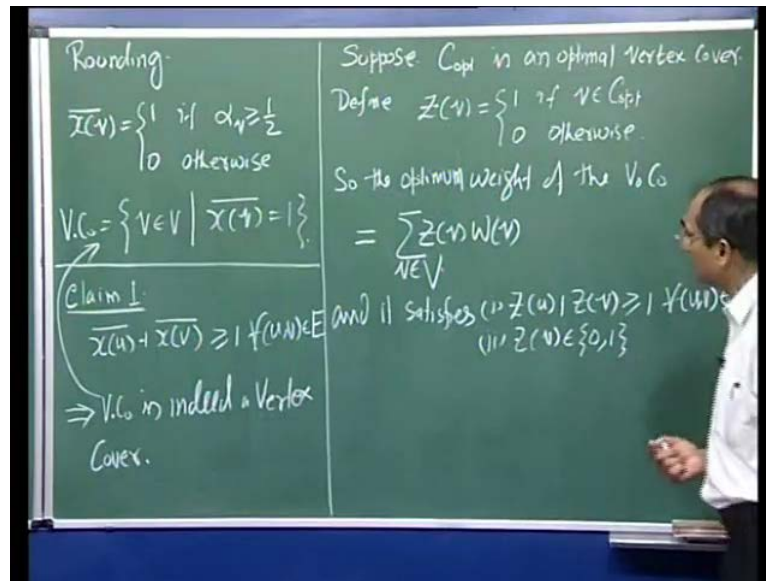 Rounding.
x̅(v) = { 1 if α_v ≥ 1/2
0 otherwise
V.Co = { v ∈ V | x̅(v) = 1 }.
Claim 1
x̅(u) + x̅(v) ≥ 1 ∀(u,v) ∈ E
⇒ V.Co is indeed a Vertex
Cover.
Suppose C_opt is an optimal vertex cover.
Define Z(v) = { 1 if v ∈ C_opt
0 otherwise.
So the optimum weight of the V.Co
= Σ_{v∈V} Z(v) W(v)
and it satisfies (i) Z(u) + Z(v) ≥ 1 ∀(u,v) ∈
(ii) Z(v) ∈ {0,1}